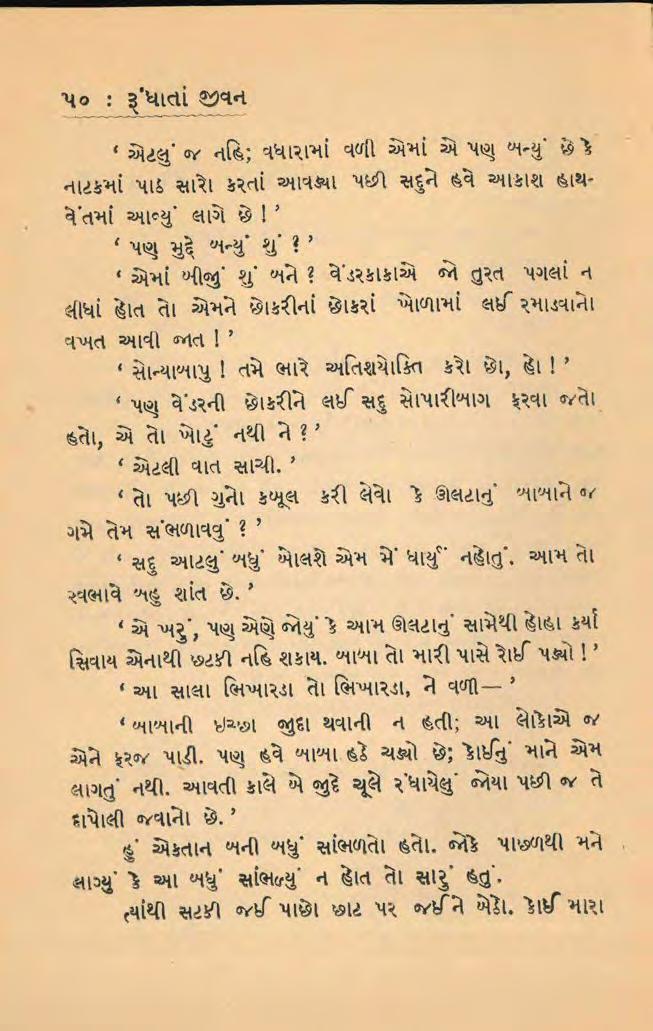 ૫૦ : રૂંધાતાં જીવન
‘ એટલું જ નહિ; વધારામાં વળી એમાં એ પણ બન્યું છે કે
નાટકમાં પાઠ સારો કરતાં આવડ્યા પછી સદુને હવે આકાશ હાથ-
વેંતમાં આવ્યું લાગે છે ! ’
‘ પણ મુદ્દે બન્યું શું ? ’
‘ એમાં બીજું શું બને ? વેંડરકાકાએ જો તુરત પગલાં ન
લીધાં હોત તો એમને છોકરીનાં છોકરાં ખોળામાં લઈ રમાડવાનો
વખત આવી જાત ! ’
‘ સોન્યાબાપુ ! તમે ભારે અતિશયોક્તિ કરો છો, હો ! ’
‘ પણ વેંડરની છોકરીને લઈ સદુ સોપારીબાગ ફરવા જતો
હતો, એ તો ખોટું નથી ને ? ’
‘ એટલી વાત સાચી. ’
‘ તો પછી ગુનો કબૂલ કરી લેવો કે ઊલટાનું બાબાને જ
ગમે તેમ સંભળાવવું ? ’
‘ સદુ આટલું બધું બોલશે એમ મેં ધાર્યું નહોતું. આમ તો
સ્વભાવે બહુ શાંત છે. ’
‘ એ ખરું, પણ એણે જોયું કે આમ ઊલટાનું સામેથી હોહા કર્યા
સિવાય એનાથી છટકી નહિ શકાય. બાબા તો મારી પાસે રોઈ પડ્યો ! ’
‘ આ સાલા ભિખારડા તો ભિખારડા, ને વળી— ’
‘ બાબાની ઇચ્છા જુદા થવાની ન હતી; આ લોકોએ જ
એને ફરજ પાડી. પણ હવે બાબા હઠે ચડ્યો છે; કોઈનું માને એમ
લાગતું નથી. આવતી કાલે બે જુદે ચૂલે રંધાયેલું જોયા પછી જ તે
દાપોલી જવાનો છે. ’
હું એકતાન બની બધું સાંભળતો હતો. જોકે પાછળથી મને
લાગ્યું કે આ બધું સાંભળ્યું ન હોત તો સારું હતું.
ત્યાંથી સટકી જઈ પાછો છાટ પર જઈને બેઠો. કોઈ મારા